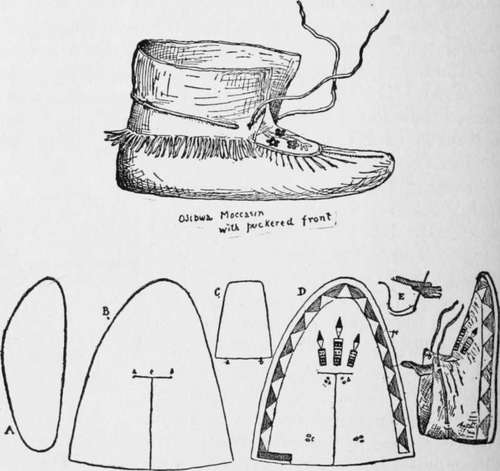 Ojibwa Moccasin
with puckered front
C
D
E
B
A
a c b